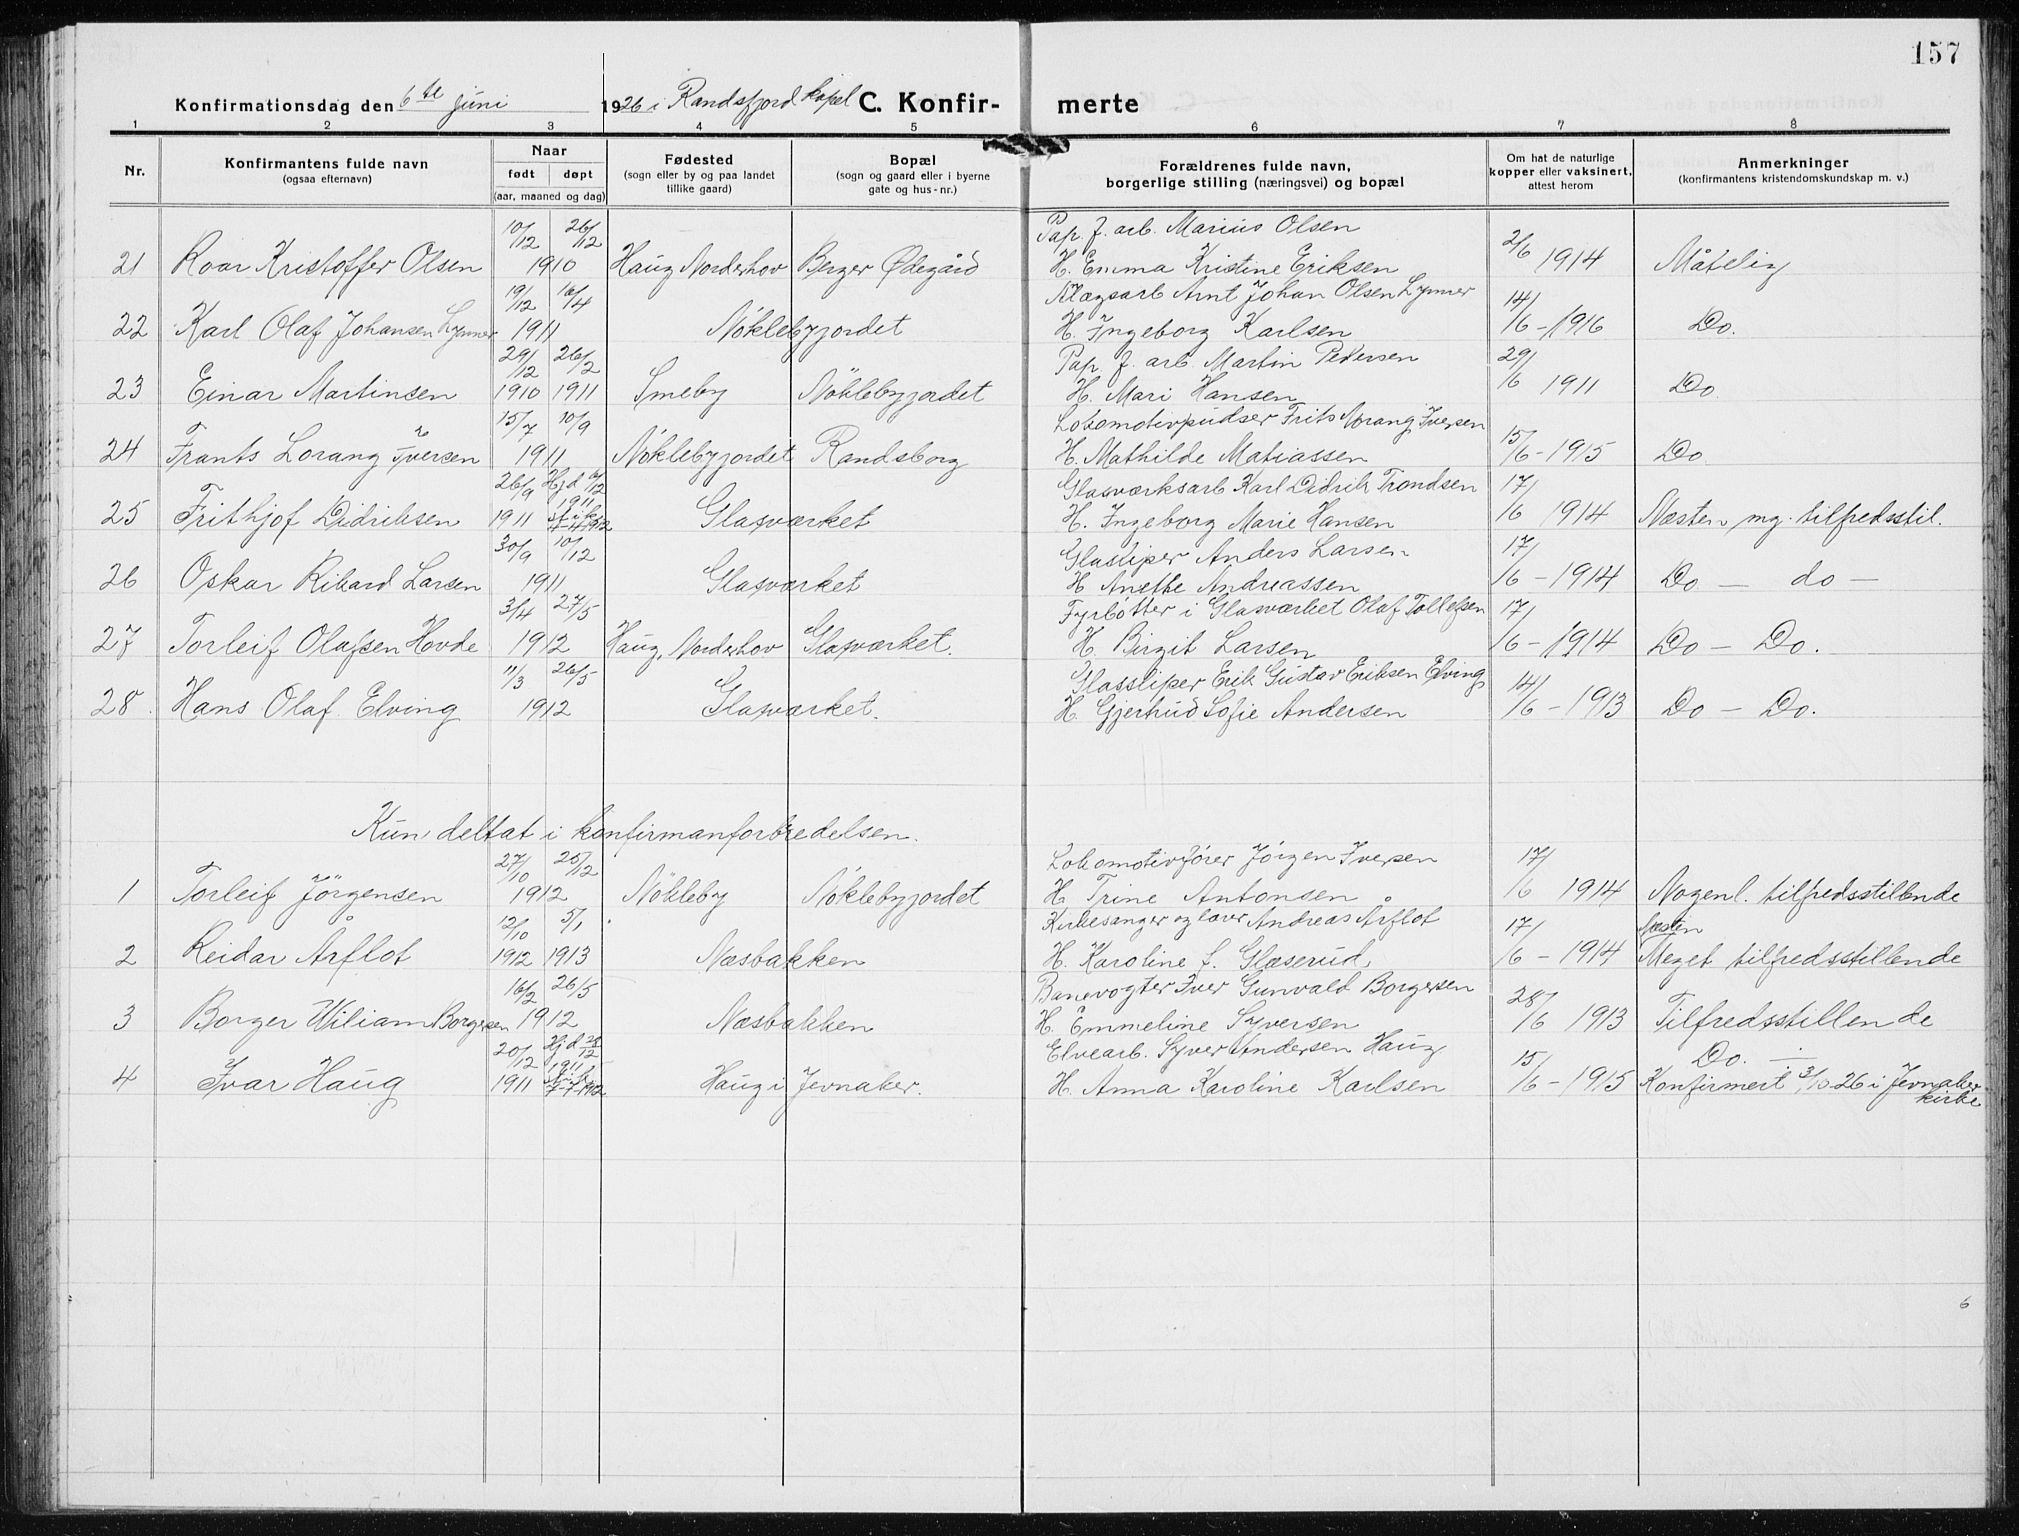 157
Konfirmationsdag den 6te juni 1926 i Randsfjord kapel C. Konfir- merte
1 2 3 4 5 6 7 8
Nr. Konfirmantens fulde navn (ogsaa efternavn) Naar født døpt (aar, maaned og dag) Fødested (sogn eller by og paa landet tillike gaard) Bopæl (sogn og gaard eller i byerne gate og hus-nr.) Forældrenes fulde navn, borgerlige stilling (næringsvei) og bopæl Om hat de naturlige kopper eller vaksinert, attest herom Anmerkninger (konfirmantens kristendomskundskap m. v.)
10/12 26/12 Pap. f. arb. Marius Olsen
21 Roar Kristoffer Olsen 1910 Haug Norderhov Berger Ødegård H. Emma Kristine Eriksen 2/6 1914 Måtelig
19/12 16/4 Arnt Johan Olsen Lynner 14/
22 Karl Olaf Johansen Lynner 1911 Nöklebyjordet H. Ingeborg Karlsen /6-1916 Do.
29/12 26/2 Pap. f. arb. Martin Pedersen 29/
23 Einar Martinsen 1910 1911 Smeby Nöklebyjordet H. Mari Hansen /6 1911 Do
15/7 10/9 Lokomotivpudser Frits Iversen
24 Frants Lorang Iversen 1911 Nöklebyjordet Randsborg H. Mathilde Matiassen 15/6-1915 Do
26/9 Hjd /12 1911 Glasværksarb Karl Didrik Trondsen 17/
25 Frithjof Didriksen 1911 Glasværket H. Ingeborg Marie Hansen /6 1914 Næsten mg. tilfredsstil.
30/9 10/12 Glasliper Anders Larsen 17/
26 Oskar Rikard Larsen 1911 Glasværket H Anethe Andreassen /6-1914 Do — do —
3/4 27/5 Fyrbötter i Glasværket Olaf Tollefsen 17/
27 Torleif Olafsen Hovde 1912 Haug, Norderhov Glasværket. H. Birgit Larsen /6-1914 Do — Do.
11/3 26/5 Glassliper Erik Gustav Eriksen Elving 14/
28. Hans Olaf Elving 1912 Glasværket. H. Gjerhud Sofie Andersen /6-1913 Do — Do.
Kun deltat i konfirmanforbredelsen.
27/10 25/12 Lokomotivfører Jörgen Iversen 17/
1 Torleif Jörgensen 1912 Nökleby Nöklebyjordet H Trine Antonsen /6 1914 Nogenl. tilfredsstillende
12/10 5/1 Kirkesanger og lærer Andreas Årflot 17/ Næsten
2 Reidar Årflot 1912 1913 Næsbakken H. Karoline f. Glæserud. /6-1914 Meget tilfredsstillende
16/2 26/5 Banevogter Iver Gunvald Borgersen 28/
3 Borger Wiliam Borgersen 1912 Næsbakken H. Emmeline Syversen /6 1913 Tilfredsstillende
20/12 Hjd 28/12 1911 Elvearb. Syver Andersen Haug 15/ Do. —
4 Ivar Haug 1911 Haug i Jevnaker. H. Anna Karoline Karlsen /6-1915 Konfirmert 3/10-26 i Jevnaker
kirke
6